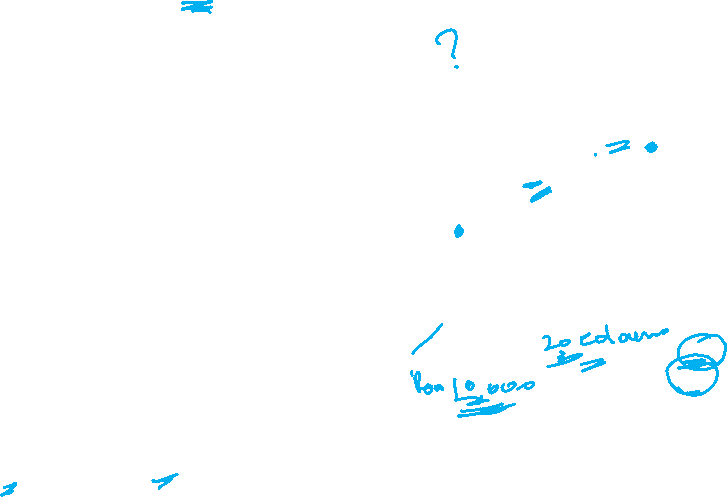 ?
20 columns
Row 10 000